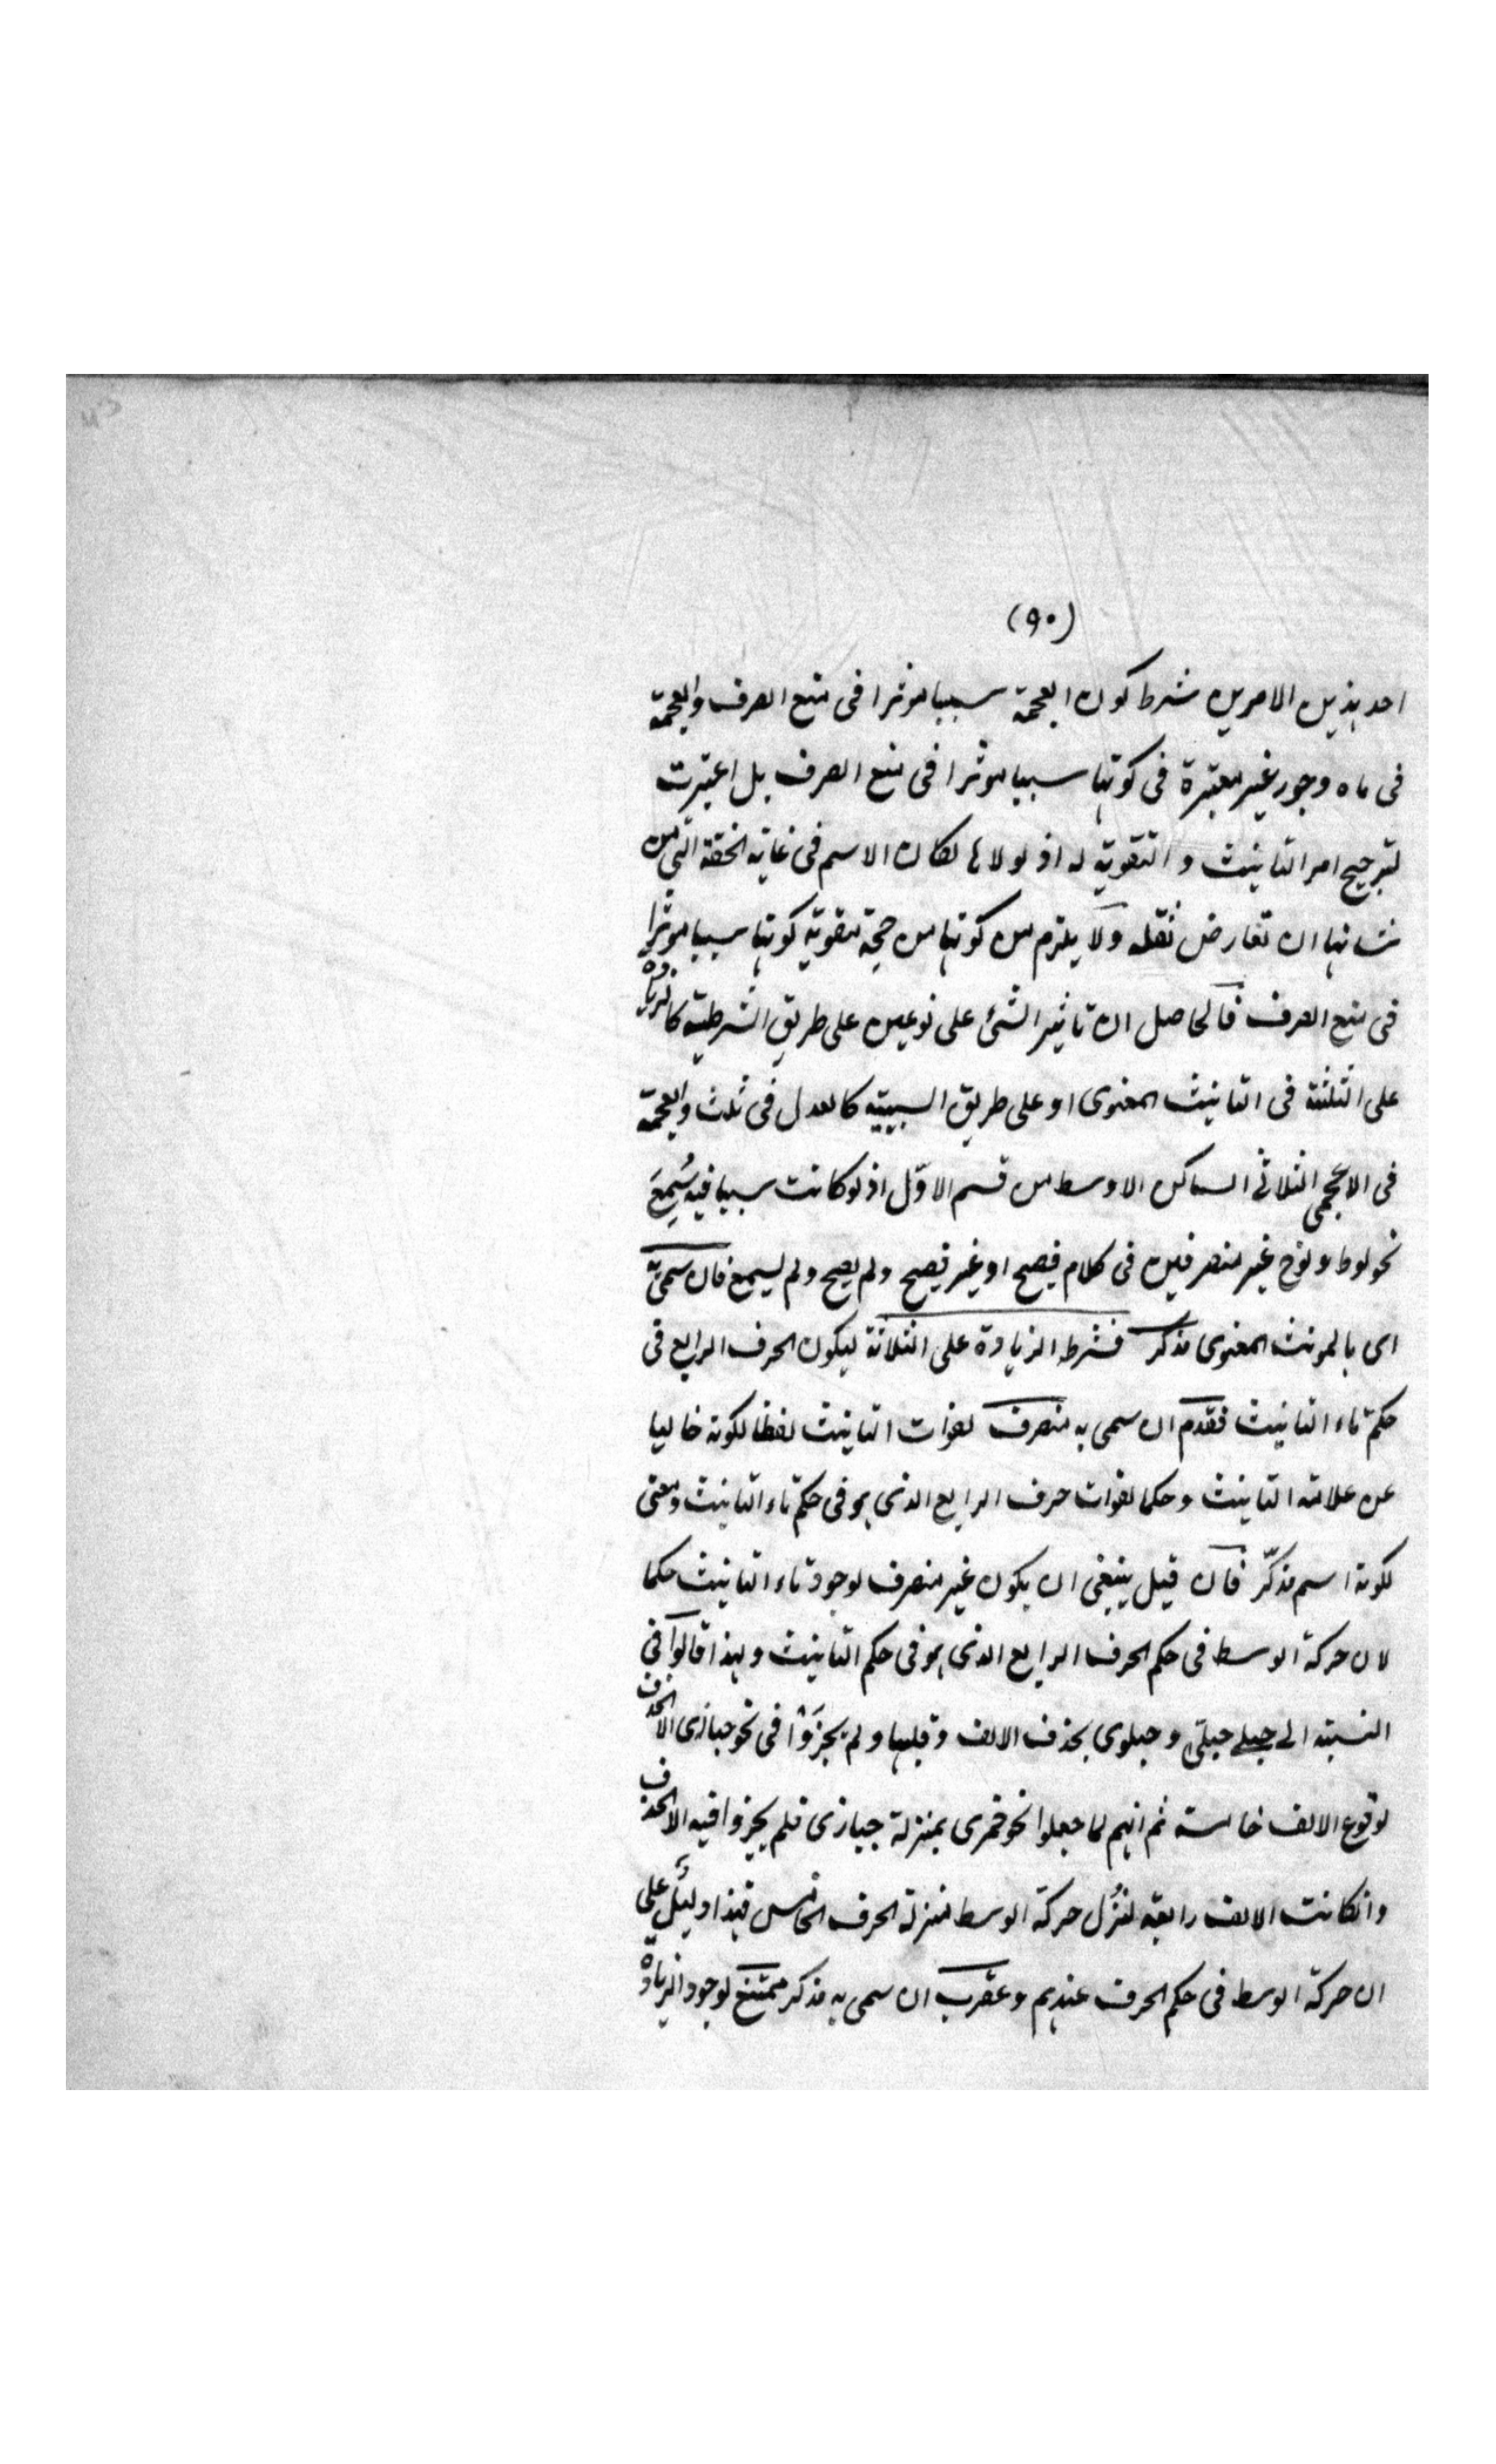 (٩٠)
احد هذين الامرين شرط كون العجمة سببا موثرا فى منع الصرف والعجمة
فى ماه وجور غير معتبرة فى كونها سببا موثرا فى منع الصرف بل اعتبرت
لترجيح امر التانيث و التقوية له اذ لولاها لكان الاسم فى غاية الخفة التى من
شانها ان تعارض ثقله ولا يلزم من كونها من جهة تقوية كونها سببا موثرا
فى منع الصرف فالحاصل ان تاثير الشئ على نوعين على طريق الشرطية كالزيادة
على الثلثة فى التانيث المعنوى او على طريق السببية كالعدل فى ثلث والعجمة
فى الاعجمى الثلاثى الساكن الاوسط من قسم الاوّل اذ لو كانت سببا فيه سُمِعَ
نحو لوط و نوح غير منصرفين فى كلام فصيح او غير فصيح ولم يصح ولم يسمع فان سمى به
اى بالمونث المعنوى مذكر فشرطه الزيادة على الثلاثة ليكون الحرف الرابع فى
حكم تاء التانيث فقدم ان سمى به منصرف لفوات التانيث لفظا لكونه خاليا
عن علامة التانيث وحكما لفوات حرف الرابع الذى هو فى حكم تاء التانيث ومعنى
لكونه اسم مذكّر فان قيل ينبغى ان يكون غير منصرف لوجود تاء التانيث حكما
لان حركة الوسط فى حكم الحرف الرابع الذى هو فى حكم التانيث ولهذا قالوا فى
النسبة الے حبلے حبلىّ و حبلوى بحذف الالف و قلبها ولم يجزَوْا فى نحو حبازى الا الحذف
لوقوع الالف خامسة ثم انهم لما جعلوا نحو قمرى بمنزلة حبازى فلم يجزوا فيه الا الحذف
وانكانت الالف رابعة لنزُل حركة الوسط منزلة الحرف الخامس فهذا دليل على
ان حركة الوسط فى حكم الحرف عندهم وعقرب ان سمى به مذكر ممتنع لوجود الزيادة